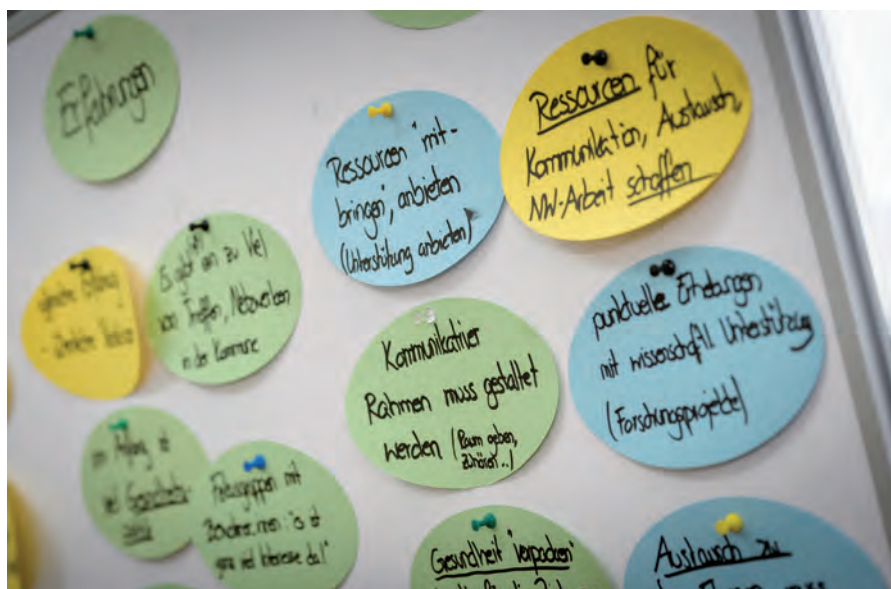 Erfahrungen
Ressourcen "mit-
bringen", anbieten
(Unterstützung anbieten)
Ressourcen für
Kommunikation, Austausch,
NW-Arbeit schaffen
Es gibt ein zu Viel
von Treffen, Netzwerken
in der Kommune
Kommunikativer
Rahmen muss gestaltet
werden (Raum geben,
zuhören...)
punktuelle Erhebungen
mit wissenschaftl. Unterstützung
(Forschungsprojekte)
am Anfang ist
viel
Fokusgruppen mit
ist
ganz viel Interesse da!"
Gesundheit "verpacken"
Austausch zu